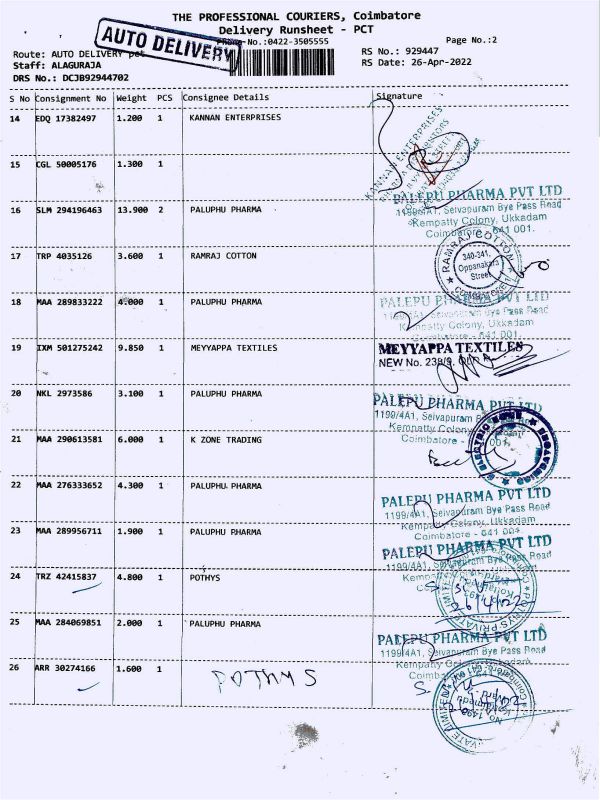 THE PROFESSIONAL COURIERS, Coimbatore
Delivery Runsheet - PCT
AUTO DELIVERY
Phone No.:0422-3505555
Page No.:2
Route: AUTO DELIVERY pct
RS No.: 929447
Staff: ALAGURAJA
RS Date: 26-Apr-2022
DRS No.: DCJB92944702
S No Consignment No Weight PCS Consignee Details Signature
14 EDQ 17382497 1.200 1 KANNAN ENTERPRISES
KANNAN ENTERPRISES
15 CGL 50005176 1.300 1
PALEPU PHARMA PVT LTD
1199/4A1, Selvapuram Bye Pass Road
Kempatty Colony, Ukkadam
Coimbatore - 641 001.
16 SLM 294196463 13.900 2 PALUPHU PHARMA
17 TRP 4035126 3.600 1 RAMRAJ COTTON
RAMRAJ COTTON
340-341,
Oppanakara
Street
COIMBATORE
18 MAA 289833222 4.000 1 PALUPHU PHARMA
PALEPU PHARMA PVT LTD
1199/4A1, Selvapuram Bye Pass Road
Kempatty Colony, Ukkadam
Coimbatore - 641 001.
19 IXM 501275242 9.850 1 MEYYAPPA TEXTILES
MEYYAPPA TEXTILES
NEW No.
20 NKL 2973586 3.100 1 PALUPHU PHARMA
PALEPU PHARMA PVT LTD
1199/4A1, Selvapuram
Kempatty Colony
Coimbatore -
21 MAA 290613581 6.000 1 K ZONE TRADING
22 MAA 276333652 4.300 1 PALUPHU PHARMA
PALEPU PHARMA PVT LTD
1199/4A1, Selvapuram Bye Pass Road
Kempatty Colony, Ukkadam
Coimbatore - 641 001
23 MAA 289956711 1.900 1 PALUPHU PHARMA
PALEPU PHARMA PVT LTD
1199/4A1, Selvapuram Bye Pass Road
24 TRZ 42415837 4.800 1 POTHYS
POTHYS PRIVATE LIMITED
25 MAA 284069851 2.000 1 PALUPHU PHARMA
PALEPU PHARMA PVT LTD
1199/4A1, Selvapuram Bye Pass Road
Kempatty Colony, Ukkadam
26 ARR 30274166 1.600 1 POTHYS